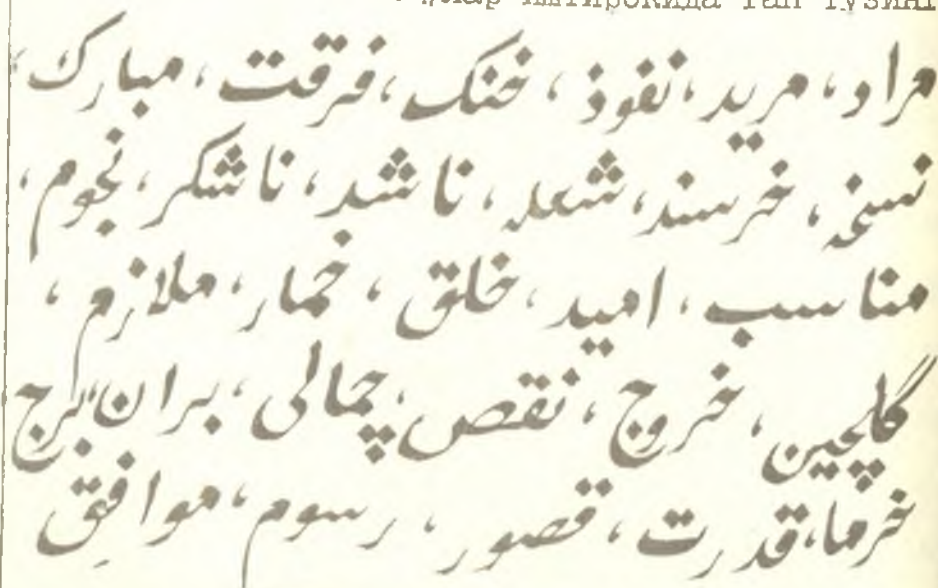 иштирокида гап тузинг
مراد، مرید، نفوذ، خنک، فرقت، مبارک،
نسخه، خرسند، شعله، ناشد، ناشکر، نجوم،
مناسب، امید، خلق، خمار، ملازم،
گلچین، خروج، نقص، چمالی، بران، برج
خرما، قدرت، قصور، رسوم، موافق